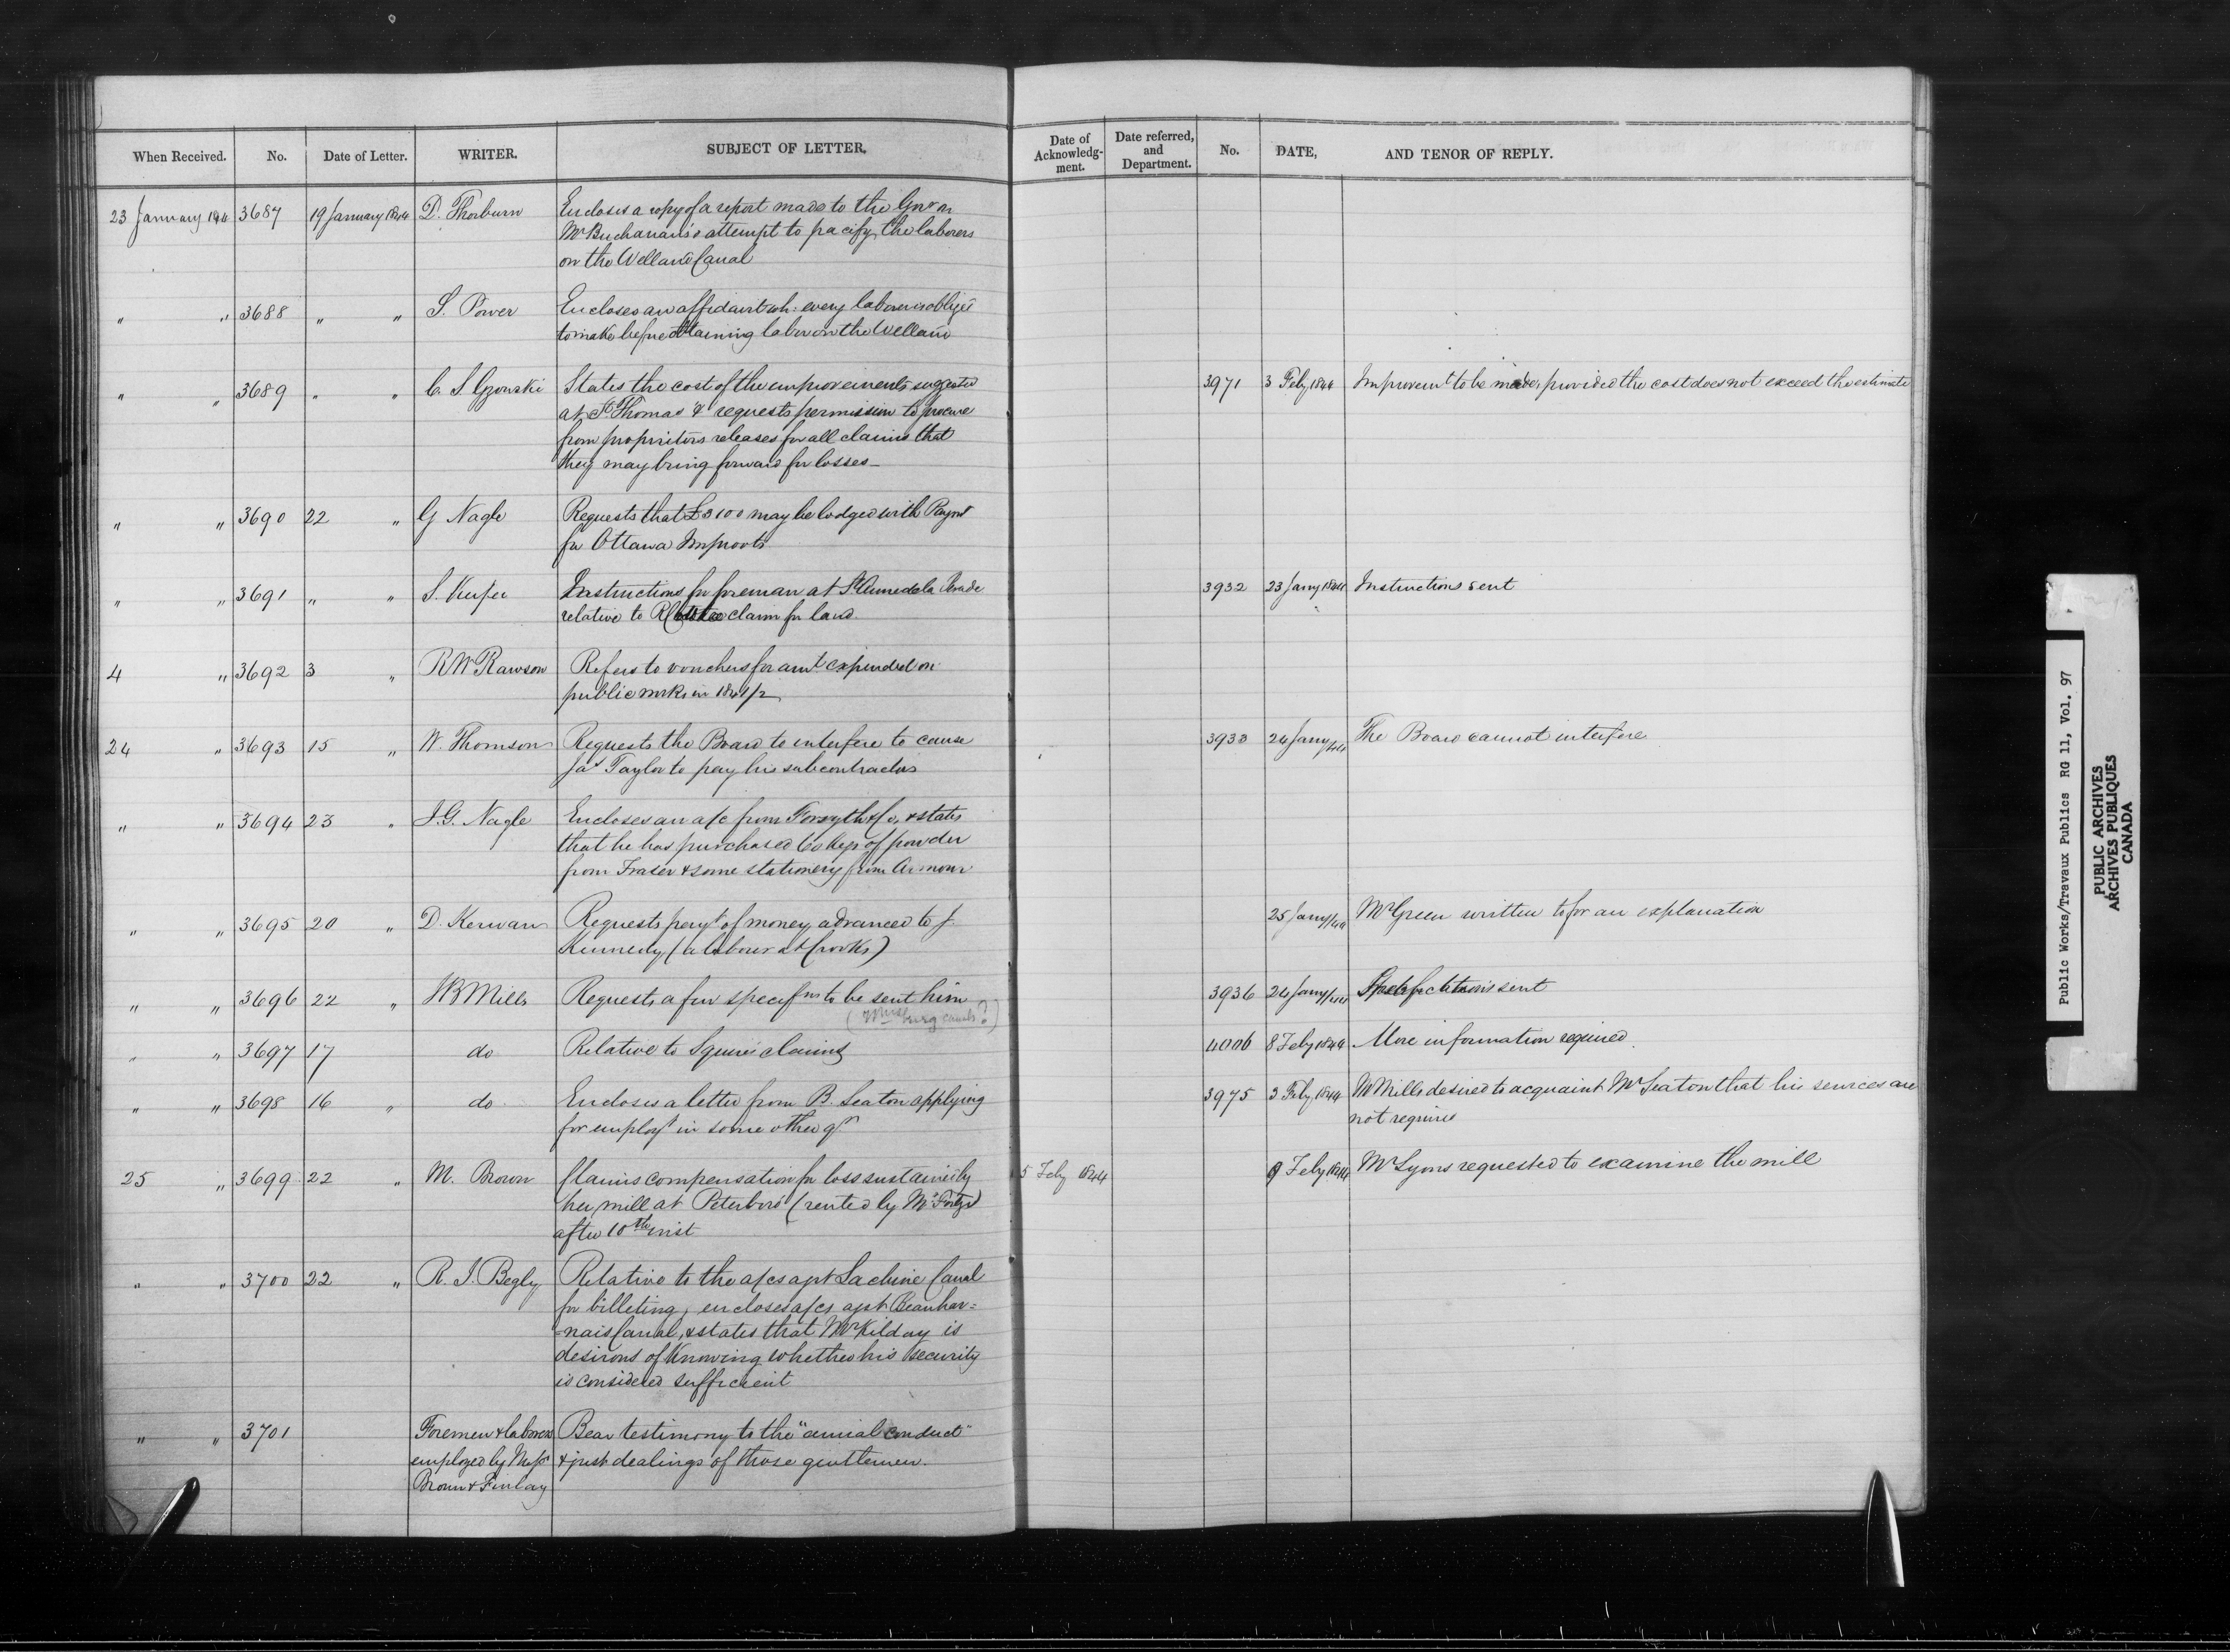 When Received. No. Date of Letter. WRITER. SUBJECT OF LETTER. Date of Acknowledg-ment. Date referred, and Department. No. DATE, AND TENOR OF REPLY.
23 January 1844 3687 19 January 1844 D. Thorburn Encloses a copy of a report made to the Govr on
Mr Buchanan's attempt to pacify the laborers
on the Welland Canal
" " 3688 " " S. Power Encloses an affidavit wh: every laborer is obliged
to make before obtaining labor on the Welland
" " 3689 " " C. S. Gzowski States the cost of the improvements suggested 3971 3 Feby 1844 Improvemt to be made, provided the cost does not exceed the estimate
at St Thomas & requests permission to procure
from proprietors releases for all claims that
they may bring forward for losses_
" " 3690 22 " G Nagle Requests that £3100 may be lodged with Paymr
for Ottawa Improvts
" " 3691 " " S. Keefer Instructions for foreman at St Anne de la Perade 3932 23 Jany 1844 Instructions sent
relative to claim for land.
4 " 3692 3 " RW Rawson Refers to vouchers for amt expended on
public works in 1841/2
24 " 3693 15 " W. Thomson Requests the Board to interfere to cause 3933 24 Jany/44 The Board cannot interfere
Jas Taylor to pay his subcontractors
" " 3694 23 " J.G. Nagle Encloses an a/c from Forsyth & Co, & states
that he has purchased 60 kegs of powder
from Fraser & some stationery from Armour
" " 3695 20 " D. Kerwan Requests payt of money advanced to J. 25 Jany/44 Mr Green written to for an explanation
Kennedy (a laborer at Crooks)
" " 3696 22 " JB Mills Requests a few specifns to be sent him 3936 24 Jany/44 Specifications sent
(Wmsburg canals?)
" " 3697 17 do Relative to Squires claims 4006 8 Feby 1844 More information required.
" " 3698 16 " do Encloses a letter from B. Seaton applying 3975 3 Feby 1844 Mr Mills desired to acquaint Mr Seaton that his services are
for employt in some other qr not required
25 " 3699 22 " M. Brown Claims compensation for loss sustained by 5 Feby 1844 9 Feby 1844 Mr Lyons requested to examine the mill
her mill at Peterboro' (rented by
after 10th inst
" " 3700 22 " R. J. Begly Relative to the a/cs agst Lachine Canal
for billeting, encloses a/cs agst Beauhar=
=nais Canal, & states that Mr Kilday is
desirous of knowing whether his security
is considered sufficient
" " 3701 Foremen & laborers Bear testimony to the "amial conduct"
employed by Messrs & just dealings of those gentlemen.
Brown & Finlay
Public Works/Travaux Publics RG 11, Vol. 97
PUBLIC ARCHIVES
ARCHIVES PUBLIQUES
CANADA